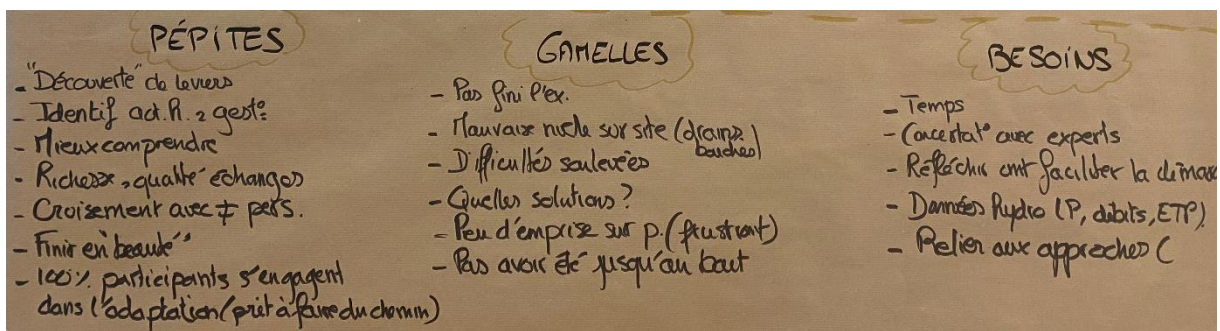 PÉPITES
- "Découverte" de leviers
- Identif act. R. 2 gest°
- Mieux comprendre
- Richesse, qualité échanges
- Croisement avec ≠ pers.
- Finir en beauté
- 100% participants s'engagent
dans l'adaptation (prêt à faire du chemin)
GAMELLES
- Pas fini l'ex.
- Mauvaise sur site (drains
bouchés)
- Difficultés soulevées
- Quelles solutions?
- Peu d'emprise sur p. (frustrant)
- Pas avoir été jusqu'au bout
BESOINS
- Temps
- Concertat° avec experts
- Réfléchir cmt faciliter la démarc
- Données hydro (P, débits, ETP)
- Relier aux approches (